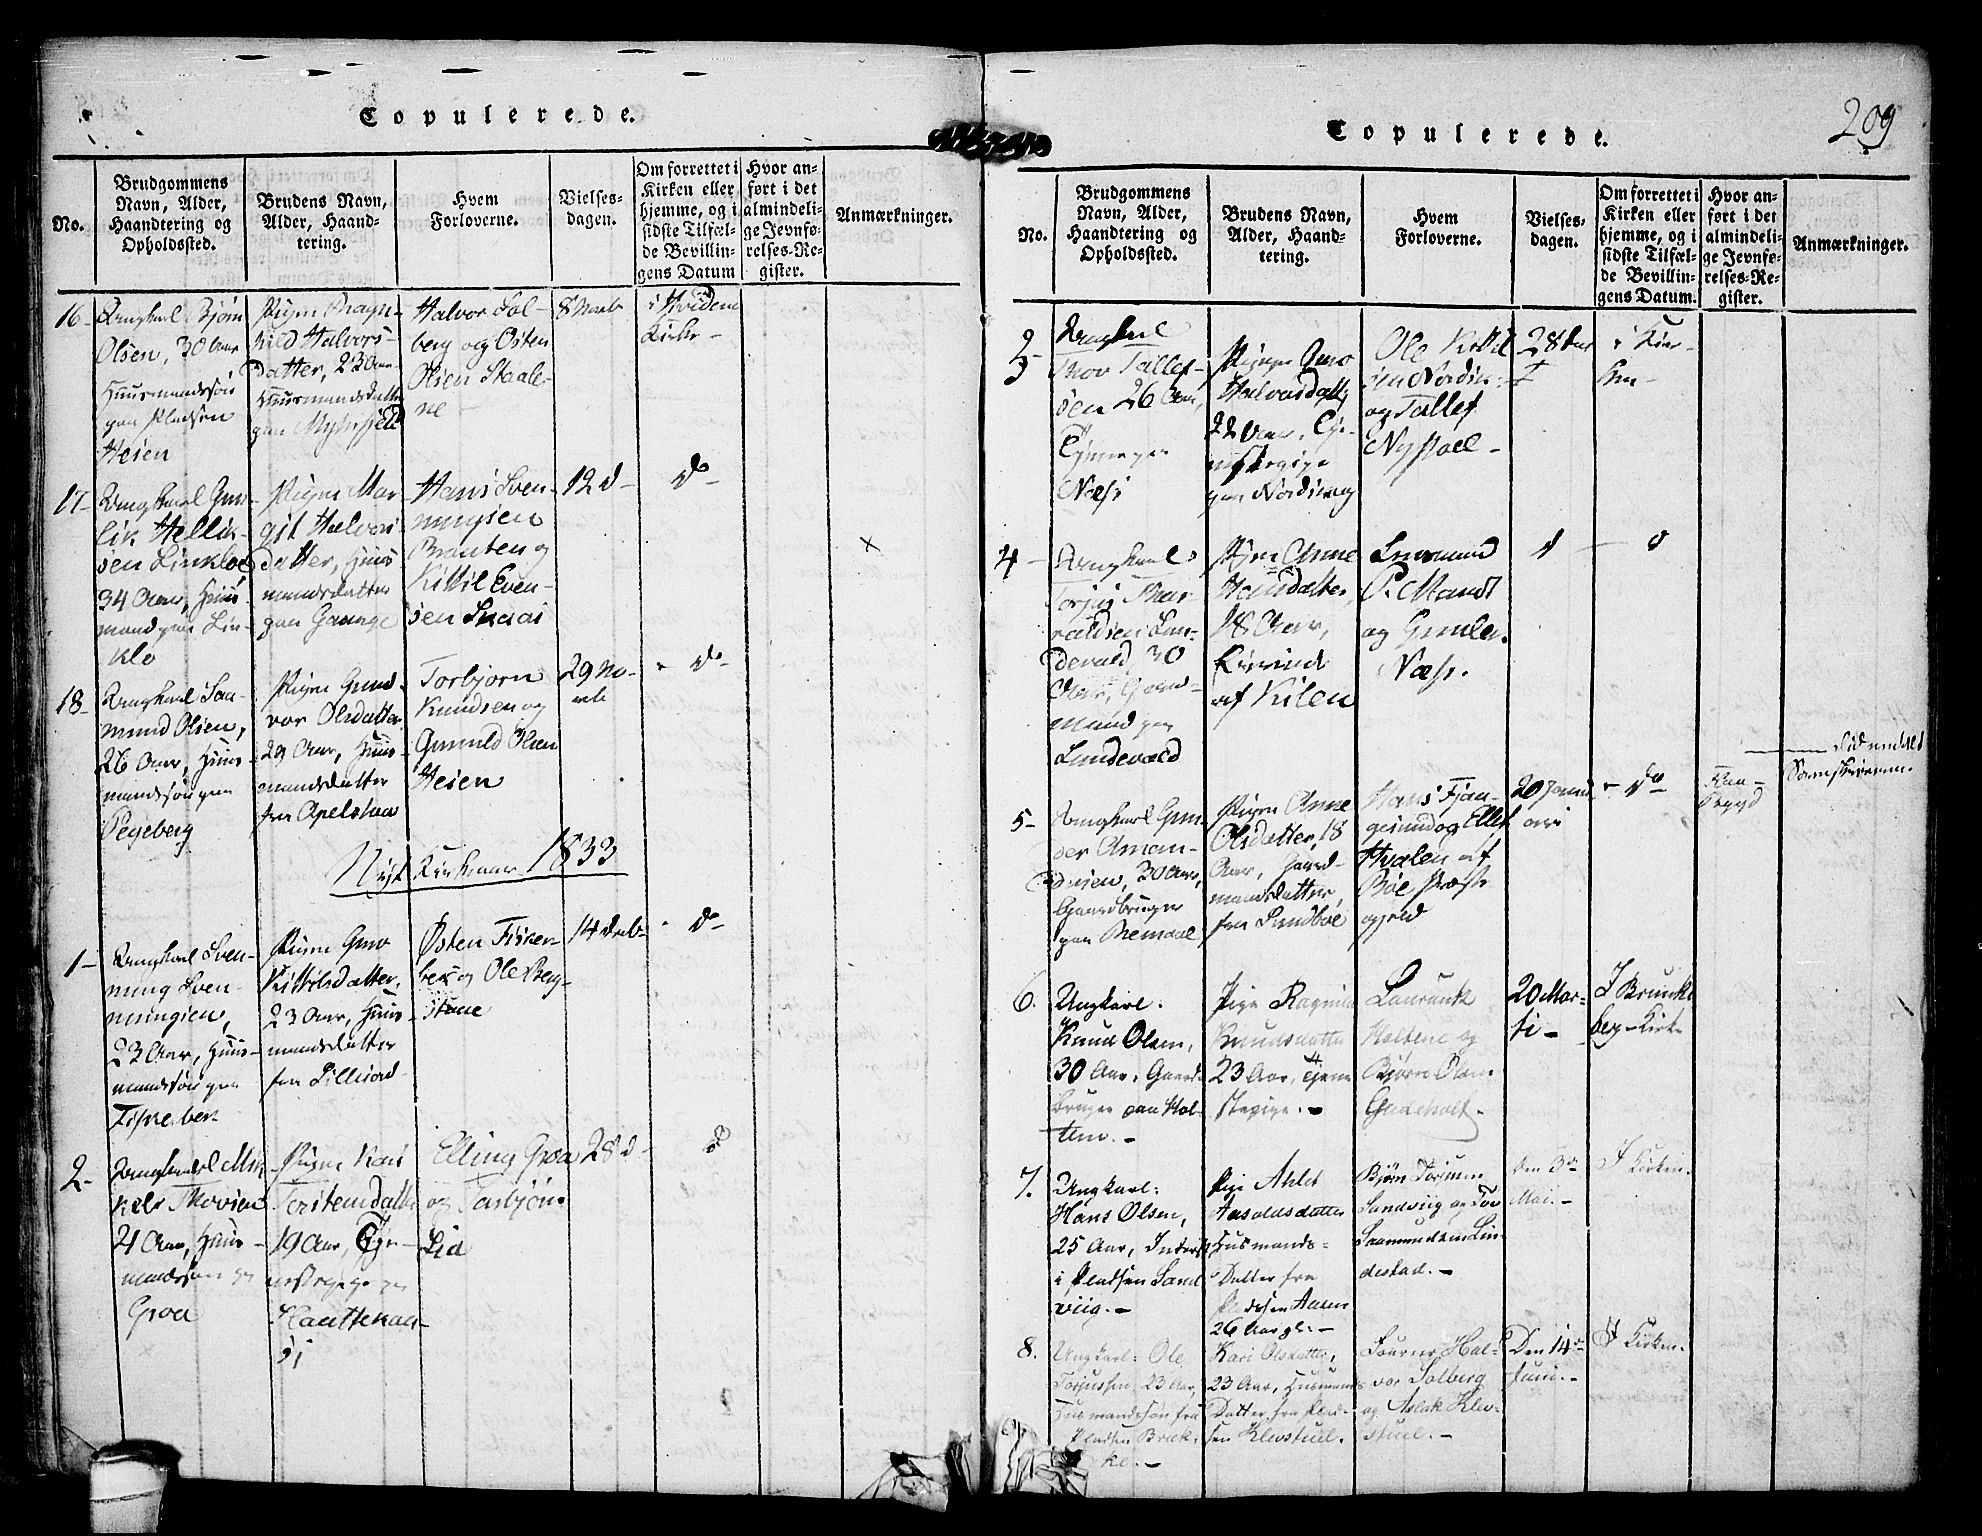 Copulerede.
No.
Brudgommens
Navn, Alder,
Haandtering og
Opholdssted.
Brudens Navn,
Alder, Haand-
tering.
Hvem
Forloverne.
Vielses-
dagen.
Om forrettet i
Kirken eller
hjemme, og i
sidste Tilfæl-
de Bevillin-
gens Datum
Hvor an-
ført i det
almindeli-
ge Jevnfø-
relses-Re-
gister.
Anmærkninger.
16-
Ungkarl Bjørn
Olsen, 30 Aar
Huusmandssøn
paa Pladsen
Heien
Pigen Ragn-
hild Halvors-
datter, 23 Aar
Huusmandsdatter
Halvor Sol-
berg og Østen
Olsen Staale-
ne -
8 Novb
i Hvidese
Kirke -
17-
Ungkarl Gun-
lik Hellik-
sen Linkloe
34 Aar, Huus
mand paa Lin-
klo
Pigen Mar
git Halvors
datter, Huus
mandsdatter
paa Gaange
Hans Sven-
nungsen
Brauten og
Kittil Even-
sen Snaai
12 d-
do
x
18-
Ungkarl Saa-
mund Olsen,
26 Aar, Huus-
mandssøn paa
Pegeberg
Pigen Gund-
vor Olsdatter
29 Aar, Huus-
mandsdatter
fra Apelstaa
Torbjørn
Knudsen og
Gunuld Olsen
Heien
29 No-
vb
- do
Nyt Kirkeaar 1833
1-
Ungkarl Sven-
nung Sven-
nungsen,
23 Aar, Huus-
mandssøn paa
Fiskebek
Pigen Gro
Kittilsdatter,
23 Aar, Huus-
mandsdatter
fra Lilleiord
Østen Fisker-
bek og Ole Berg-
stene
14 Decb-
- do
2-
Ungkarl Mik
kel Thovsen
21 Aar, Huus-
mandssøn paa
Groa
Pigen Kari
Torstensdatter
19 Aar, Tje-
nestepige paa
Elling Groa
og Torbjørn
Lid
28 d-
do
Copulerede.
209
No.
Brudgommens
Navn, Alder,
Haandtering og
Opholdssted.
Brudens Navn,
Alder, Haand-
tering.
Hvem
Forloverne.
Vielses-
dagen.
Om forrettet i
Kirken eller
hjemme, og i
sidste Tilfæl-
de Bevillin-
gens Datum.
Hvor an-
ført i det
almindeli-
ge Jevnfø-
relses-Re-
gister.
Anmærkninger.
3-
Ungkarl
Thor Tallef-
sen 26 Aar,
Tjener paa
Næss
Pigen Gro
Halvorsdatter
22 Aar, Tje-
nestepige
paa Nordskog
Ole Kittil
sen
og Tallef
Nystoel -
28 Dec
i Kir-
ken -
4-
Ungkarl
Torjus Thar
raldsen Lun-
devald, 30
Aar, Gaard-
mand paa
Lundevald
Pigen Anne
Hansdatter,
18 Aar,
af Kilen
Lensmand
P. Mandt
og Gunle
Næss.
d
- d
5-
Ungkarl Gun-
der Aman-
dsen, 30 Aar,
Gaardbruger
paa Bremdal
Pigen Anne
Olsdatter, 18
Aar, Gaard-
mandsdatter,
fra Sundboe
Hans Fjaa-
gesund og Ellef
Hvalen af
Bøe Præste
gjeld
20 Janu
ari
- do
6.
Ungkarl:
Knud Olsen,
30 Aar, Gaard-
bruger paa Hol-
tene. -
Pige Ragnild
Knudsdatter
23 Aar, Tjene
stepige. -
Laurantz
Holtene og
Bjørn Olsen
Gudeholt. -
20 Mar-
ti -
I Brunke
berg-Kirke
7.
Ungkarl:
Hans Olsen,
25 Aar, Inderst
i Pladsen Sand
viig. -
Pige Aslet
Aasoldsdatter
Husmands-
Datter fra
Pladsen Aasen
26 Aar gl. -
Bjørn Torjussen
Sandviig og Tov
Saamundsen Lin
destad. -
Den 3die
Mai. -
I Kirken.
8.
Ungkarl: Ole
Torjussen, 23 Aar,
Husmandssøn fra
Pladsen Bræk-
ke. -
Kari Olsdatter,
23 Aar, Husmands
Datter fra Plad-
sen Klevstuel.
Hal-
vor Solberg
og Aslak Klev-
stuel. -
Den 14de
Juni. -
I Kirken.